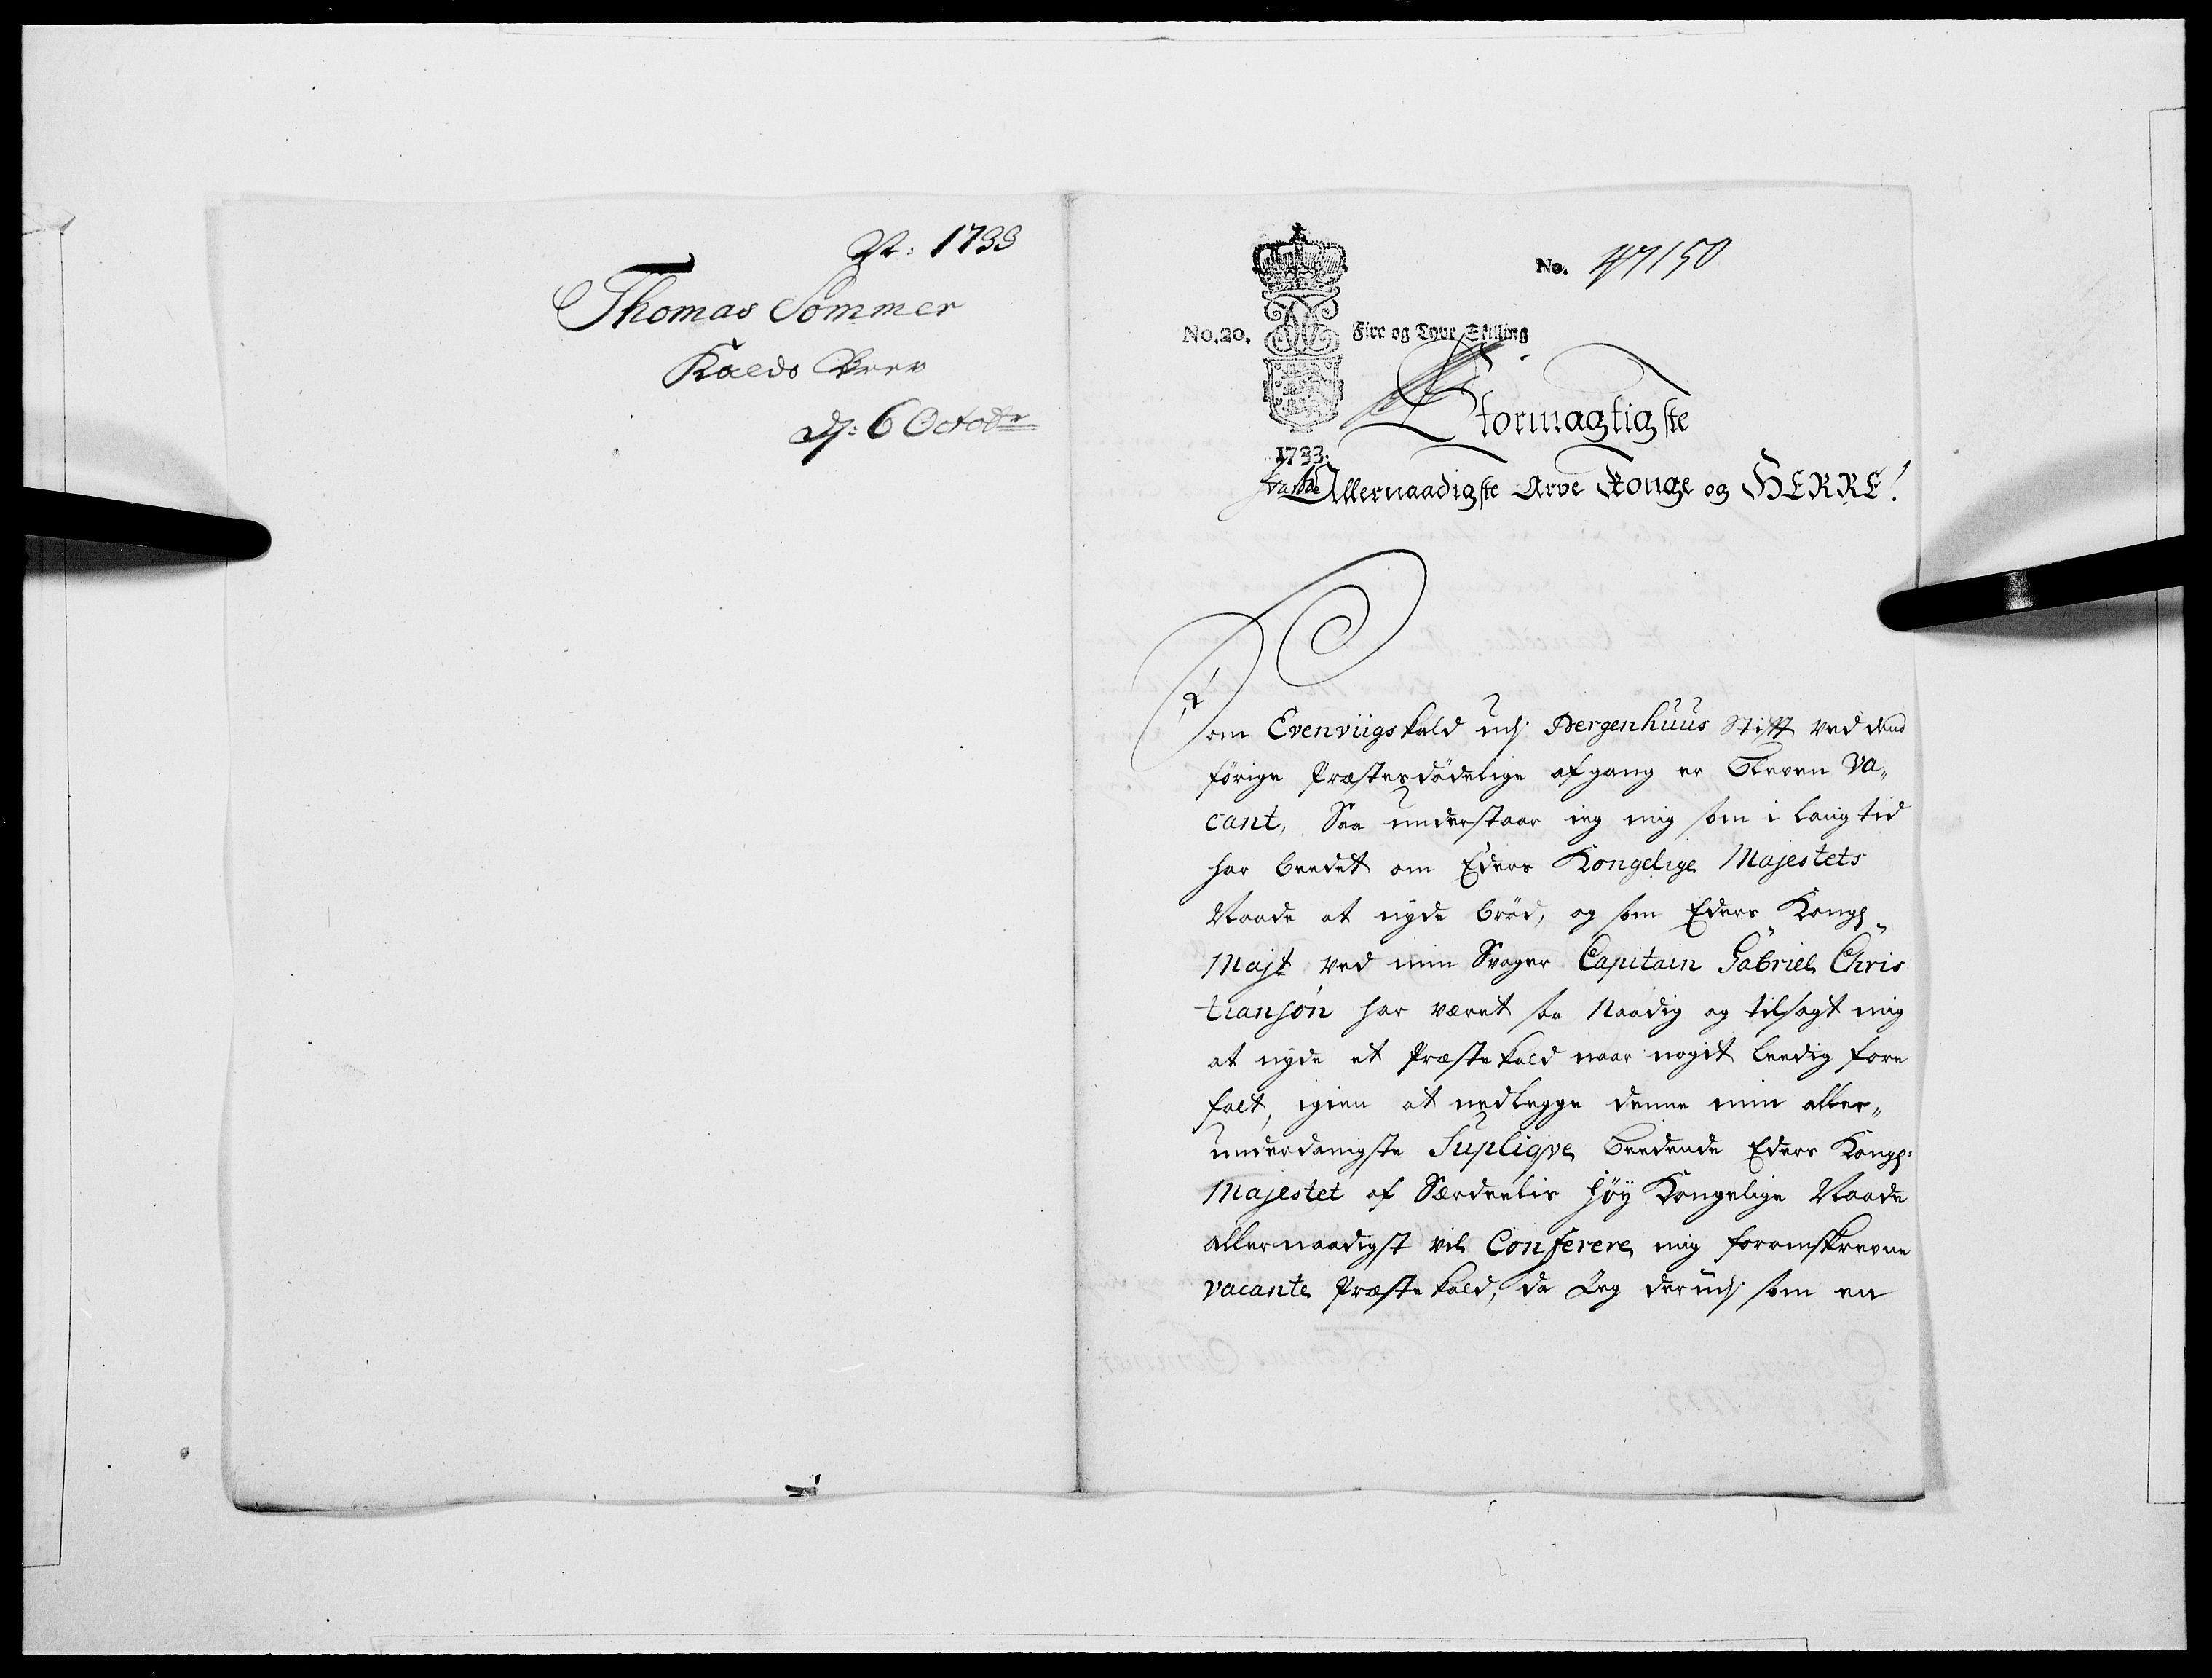 N: 1733
Thomas Sommer
Kalds Brev
d: 6 Octobr
No. 47150
No. 20. Fire og Tyve Skilling
1733.
Stormagtigste
Allernaadigste Arve Konge og HERRE!
Som Evenviigs kald udj Bergenhuus Stift ved dend
forige Præstes dødelige afgang er bleven va„
cant, Saa understaar ieg mig som i lang tid
har beedet om Eders Kongelige Majestets
Naade at nyde brød, og som Eders Kongl„
Majt ved min Svoger Capitain Gabriel Chris
tiansøn har været saa Naadig og tilsagt mig
at nyde et Præste kald naar nogit leedig fore
falt, igien at nedlegge denne min aller„
underdanigste Supliqve beedende Eders Kongl:
Majestet af Særdeelis høy Kongelige Naade
allernaadigst vil Conferere mig foromskrevne
vacante Præste kald, da Jeg derudj som en